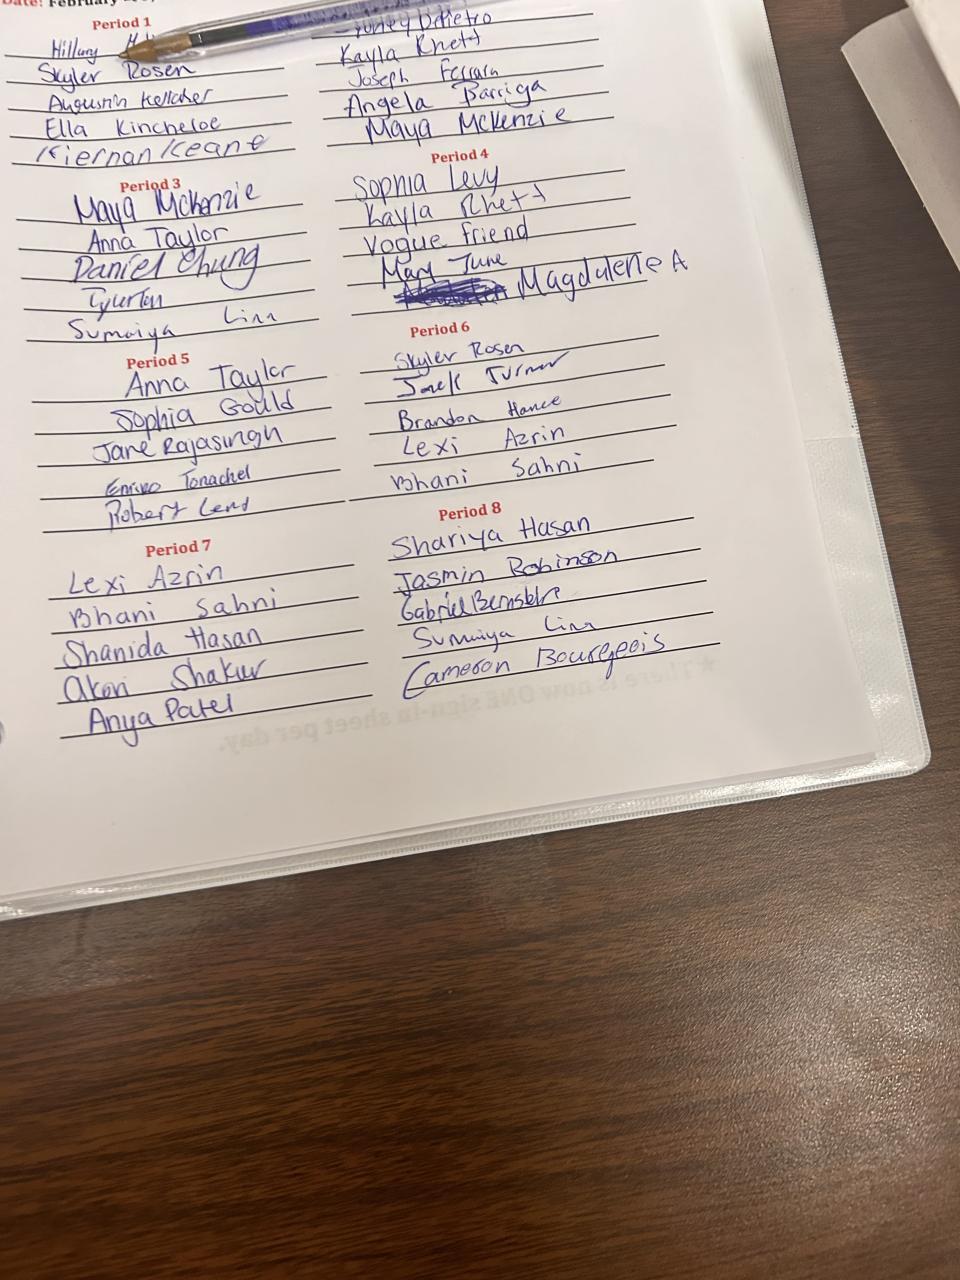 Date: February
Period 1
Hillary
Skyler Rosen
Augustin Kelleher
Ella Kincheloe
Kiernan Keane
Kayla Rhett
Joseph Ferrara
Angela Barriga
Maya McKenzie
Period 3
Maya McKenzie
Anna Taylor
Daniel Chung
Sumaiya
Period 4
Sophia Levy
Kayla Rhett
Vogue friend
Mary June
Magdalene A
Period 5
Anna Taylor
Sophia Gould
Jane Rajasingh
Tonachel
Robert
Period 6
Skyler Rosen
Turner
Brandon Hance
Lexi Azrin
Bhani Sahni
Period 7
Lexi Azrin
Bhani Sahni
Shanida Hasan
Akori Shakur
Anya Patel
Period 8
Shariya Hasan
Jasmin Robinson
Gabriel
Sumaiya
Cameron Bourgeois
★There is now ONE sign-in sheet per day.